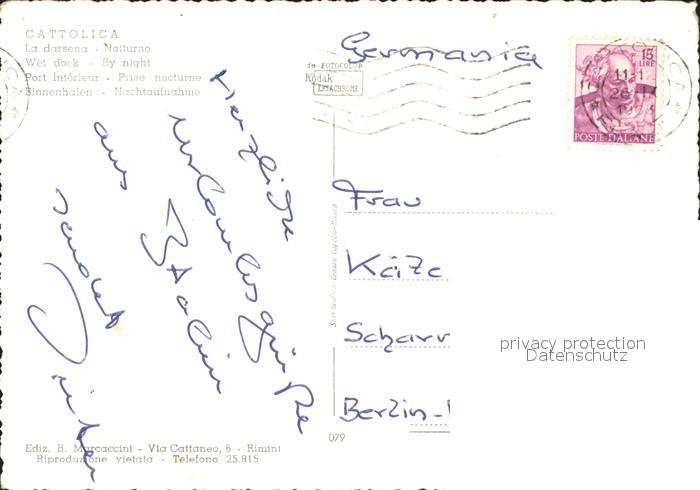 CATTOLICA
La darsena - Notturno
Wet dock - By night
Port intérieur - Prise nocturne
Binnenhafen - Nachtaufnahme
Herzliche
Urlaubsgrüße
aus Italien
sendet
da FOTOCOLOR
Kodak
EKTACHROME
Germania
15
LIRE
POSTE ITALIANE
Frau
Käte
Scharr
Berlin-
privacy protection
Datenschutz
079
Ediz. B. Marcaccini - Via Cattaneo, 6 - Rimini
Riproduzione vietata - Telefono 25.815